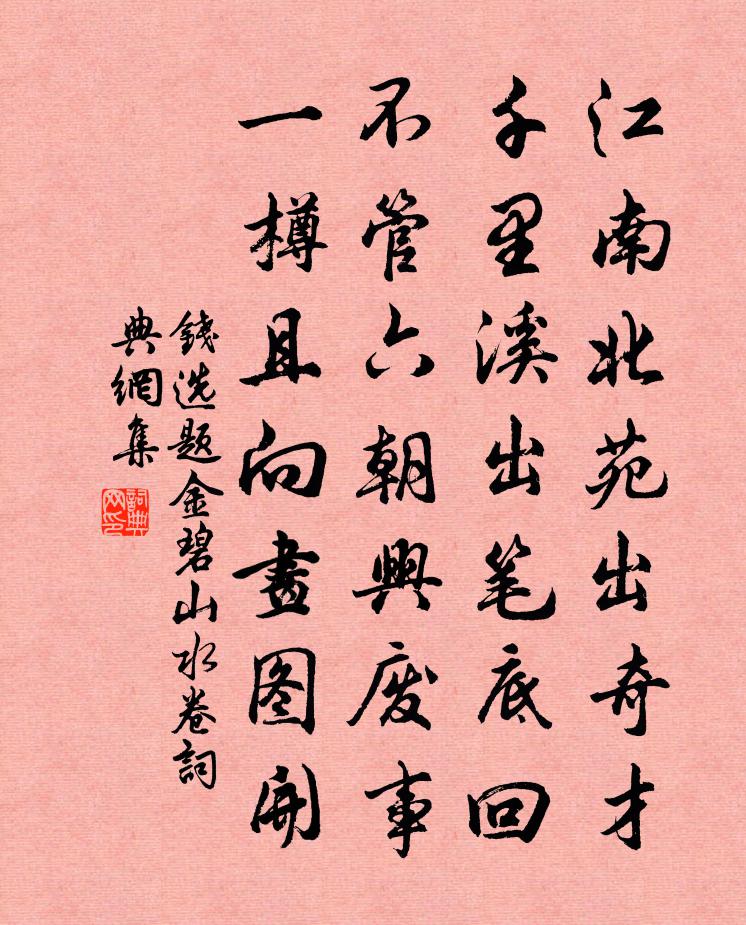 江南北苑出奇才
千里溪出笔底回
不管六朝興废事
一樽且向畫图開
錢选题金碧山水卷詞
典網集
詞典网印